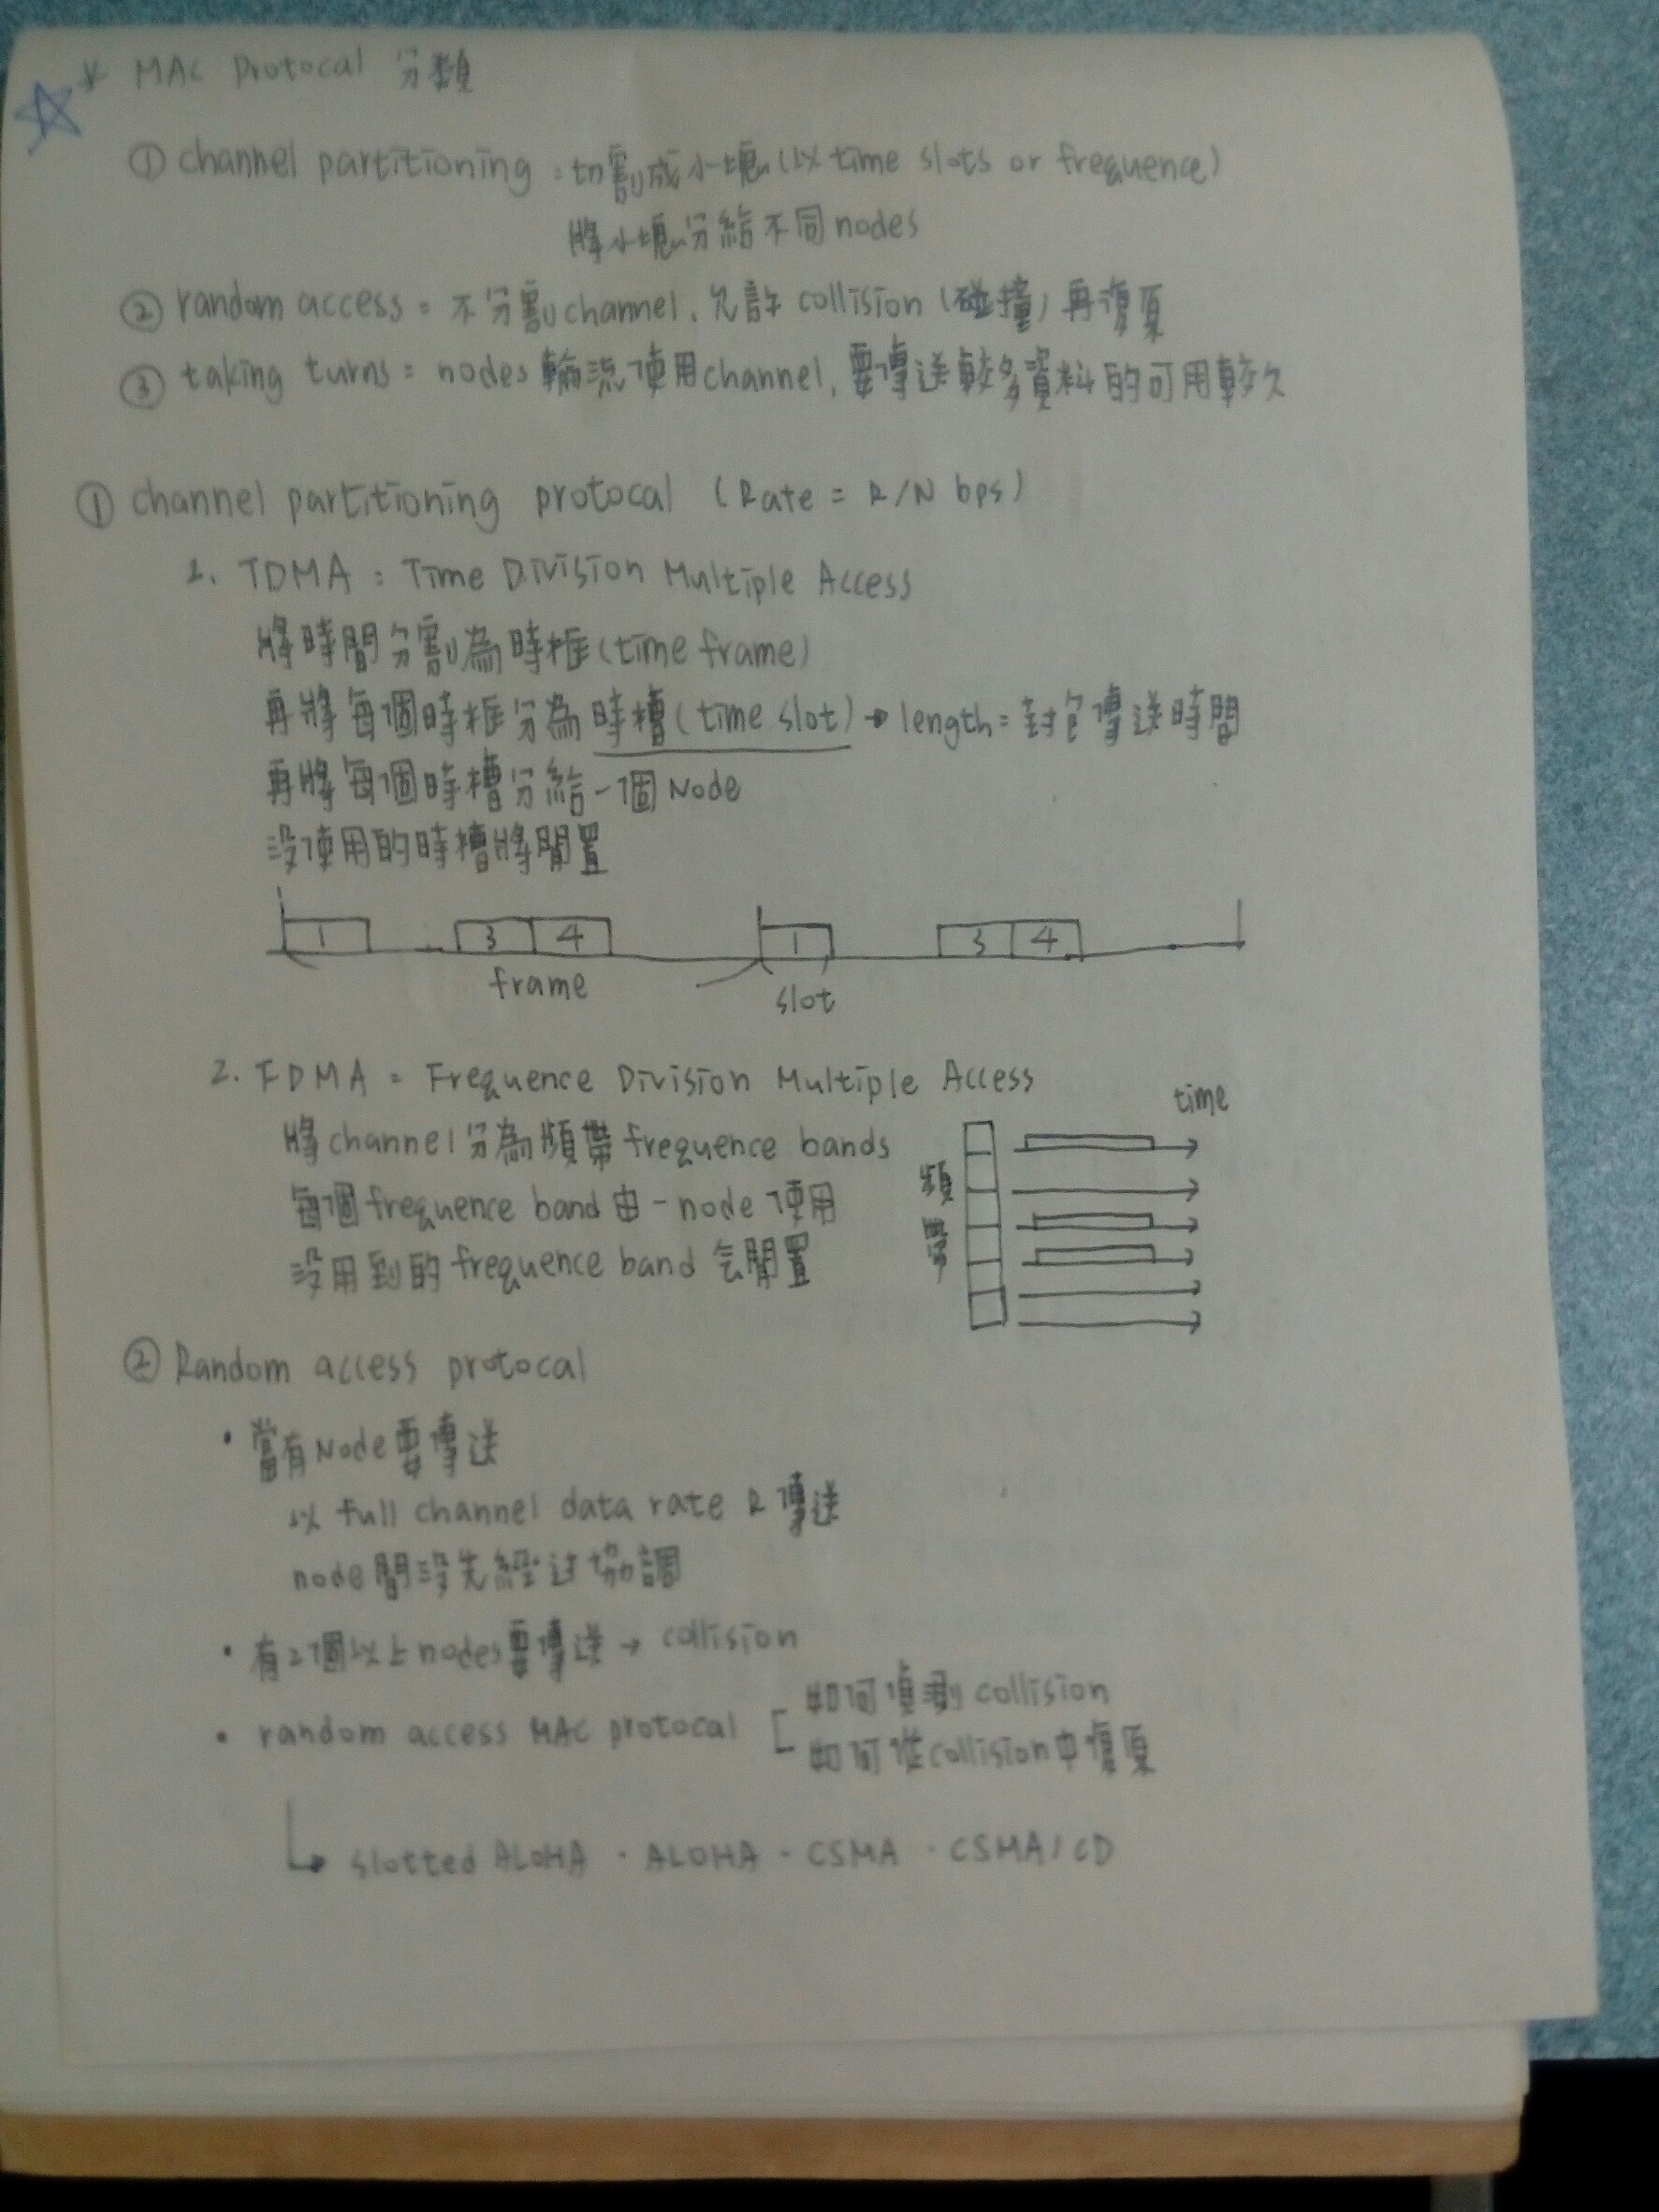 * MAC Protocal 分類
① channel partitioning : 切割成小塊 (以 time slots or frequence)
將小塊分給不同 nodes
② random access = 不分割 channel, 允許 collision (碰撞) 再復原
③ taking turns = nodes 輪流使用 channel, 要傳送較多資料的可用較久
① channel partitioning protocal (Rate = R/N bps)
1. TDMA : Time Division Multiple Access
將時間分割為時框 (time frame)
再將每個時框分為時槽 (time slot) → length = 封包傳送時間
再將每個時槽分給一個 Node
沒使用的時槽將閒置
1 3 4 1 3 4
frame
slot
2. FDMA = Frequence Division Multiple Access
time
將 channel 分為頻帶 frequence bands
每個 frequence band 由一 node 使用
沒用到的 frequence band 会閒置
頻帶
② Random access protocal
• 當有 Node 要傳送
以 full channel data rate R 傳送
node 間沒先經过協調
• 有2個以上 nodes 要傳送 → collision
• random access MAC protocal [ 如何偵測 collision
如何從 collision 中復原
↳ slotted ALOHA · ALOHA · CSMA · CSMA/CD